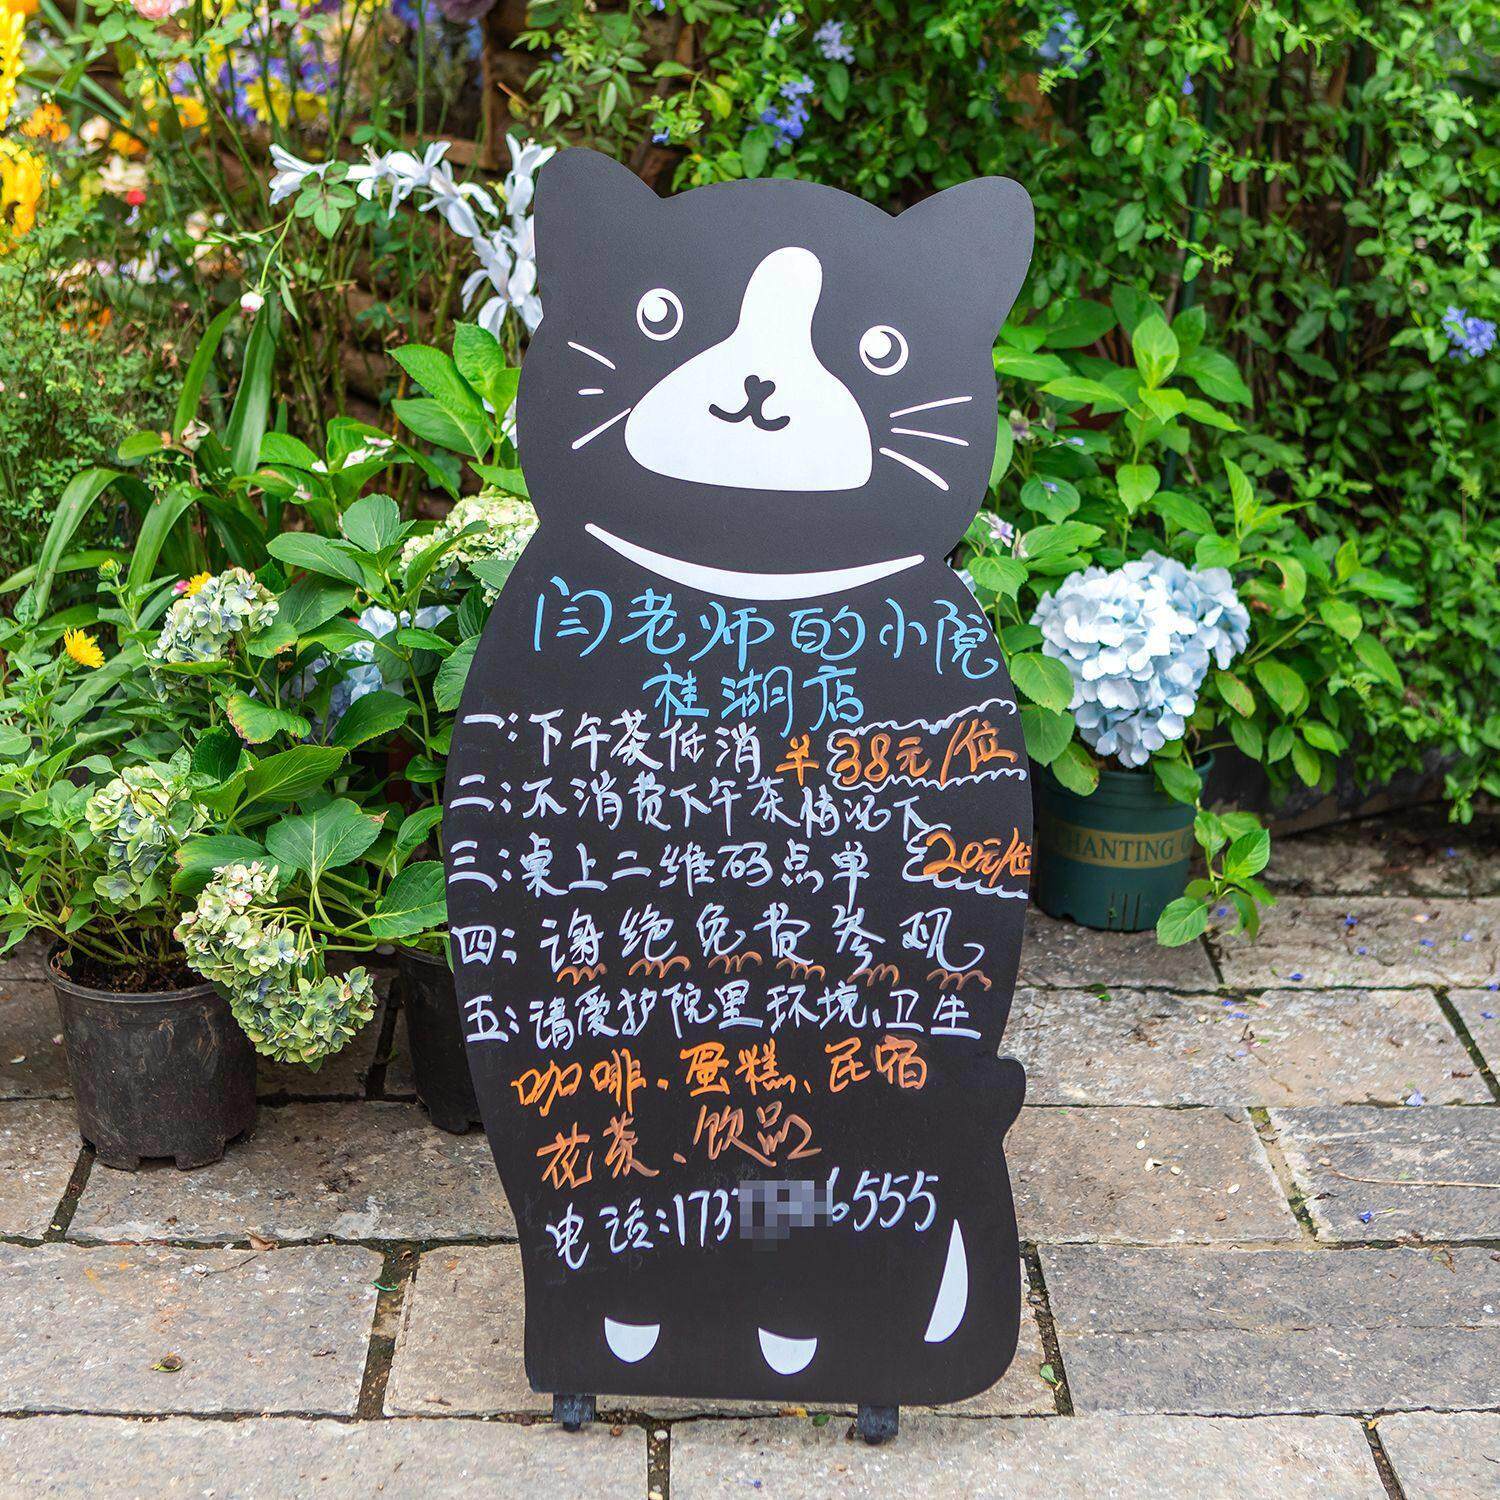 闫老师的小院
桂湖店
一:下午茶低消 半 38元/位
二:不消费下午茶情况下
20元/位
三:桌上二维码点单
四:谢绝免费参观
五:请爱护院里环境、卫生
咖啡、蛋糕、民宿
花茶、饮品
电话:173 6555
CHANTING